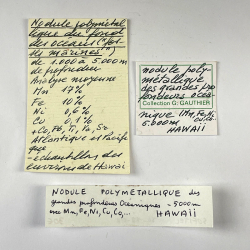 Nodule polymétal
lique du fond
des océans ("for
êts marines")
de 1.000 à 5.000m
de profondeur
Analyse moyenne
Mn 17%
Fe 10%
Ni 0,6%
Cu 0,1%
+ Co, Pb, Ti, Ta, Sr
Atlantique et Pacifi
que
- échantillon des
environs de Hawaï
nodule poly-
métallique
des grandes pro
fondeurs océa-
Collection G. GAUTHIER
nique. (Mn, Fe, Ni,
Cu, Co
5000m
HAWAII
NODULE POLYMETALLIQUE des
grandes profondeurs Océaniques - 5000m
avec Mn, Fe, Ni, Cu, Co,...
HAWAII